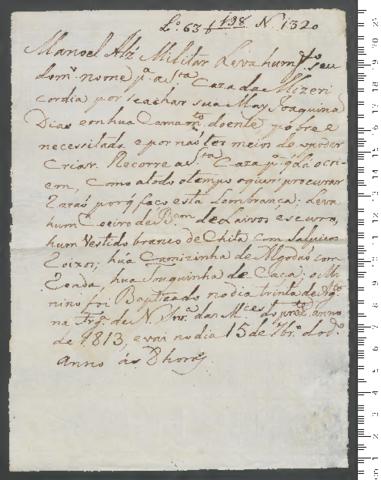 Lº 63 f 198 Nº 1320
Manoel Alz' Militar Leva hum fº seu
do m.º nome pª a Sta Caza da Mizeri
cordia por se achar sua May Joaquina
Dias en hua Cama m.to doente pobre e
necesitada e por não ter meios de o poder
Criar. Recorre a Sta Caza pª q̃ da o cri
em, Como a todo o tempo o quer procurar
Razaõ porq̃ faço esta Lembrança; Leva
hum Coeiro de de Laivos escuros,
hum Vestido branco de Chita com salpicos
Roixos; húa Camizinha de Algodaõ com
Renda, húa Touquinha de Caça; o Me
nino foi Baptizado no dia trinta de Ag.to
na Frg.ª de N. Snr.ª das M.ces do prez.e anno
de 1813, e vai no dia 15 de 7br.º do d.º
anno ás 8 horas